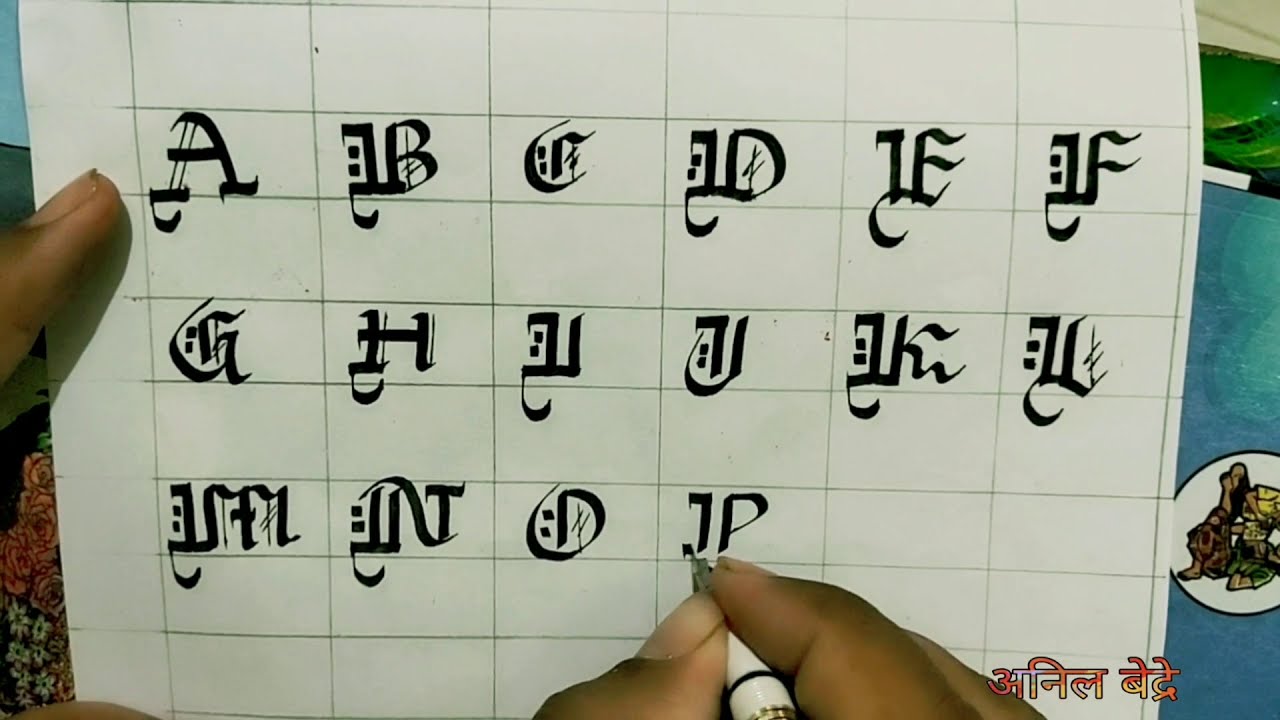 A B C D E F
G H I J K L
M N O P
अनिल बेद्रे